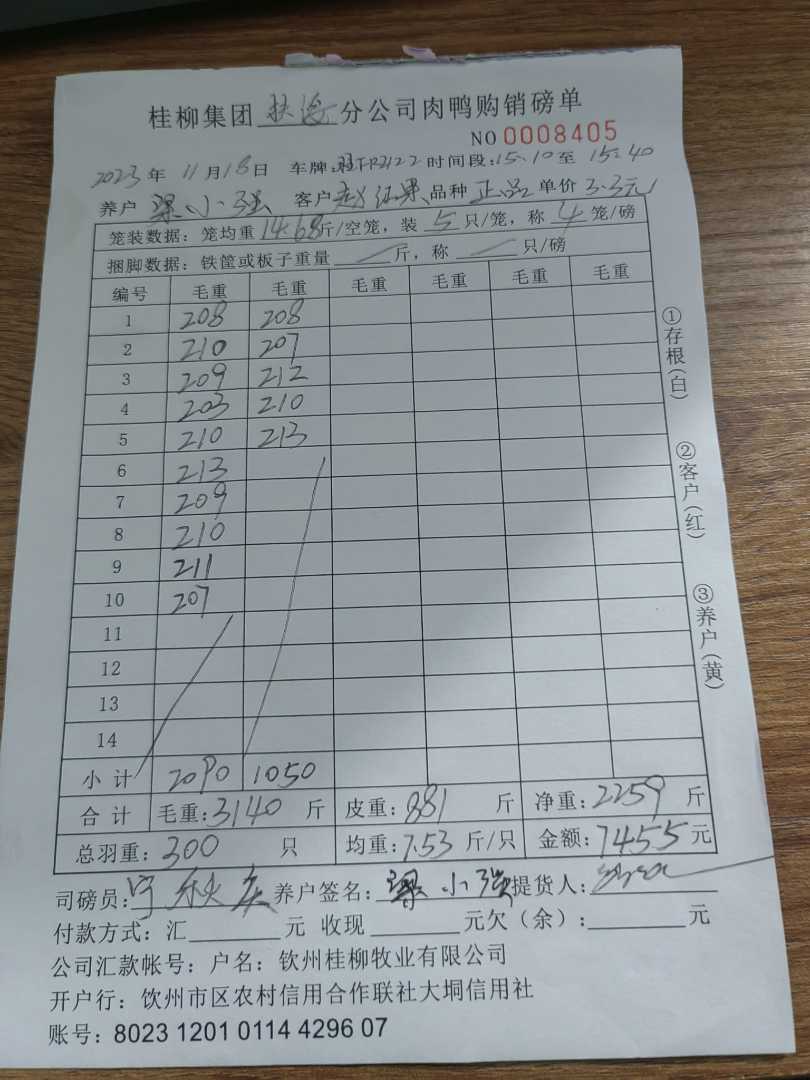 桂柳集团 扶绥 分公司肉鸭购销磅单
NO 0008405
2023 年 11 月 18 日 车牌: 桂FR2122 时间段: 15:10 至 15:40
养户 梁小强 客户 品种 正品 单价 3.3元
笼装数据: 笼均重 14.68 斤/空笼, 装 5 只/笼, 称 4 笼/磅
捆脚数据: 铁筐或板子重量 斤, 称 只/磅
编号 毛重 毛重 毛重 毛重 毛重 毛重
1 208 208
2 210 207
3 209 212
4 203 210
5 210 213
6 213
7 209
8 210
9 211
10 207
11
12
13
14
小计 2090 1050
合计 毛重: 3140 斤 皮重: 881 斤 净重: 2259 斤
总羽重: 300 只 均重: 7.53 斤/只 金额: 7455 元
司磅员: 养户签名: 梁小强 提货人:
付款方式: 汇 元 收现 元欠(余): 元
公司汇款帐号: 户名: 钦州桂柳牧业有限公司
开户行: 饮州市区农村信用合作联社大垌信用社
账号: 8023 1201 0114 4296 07
①存根(白)
②客户(红)
③养户(黄)